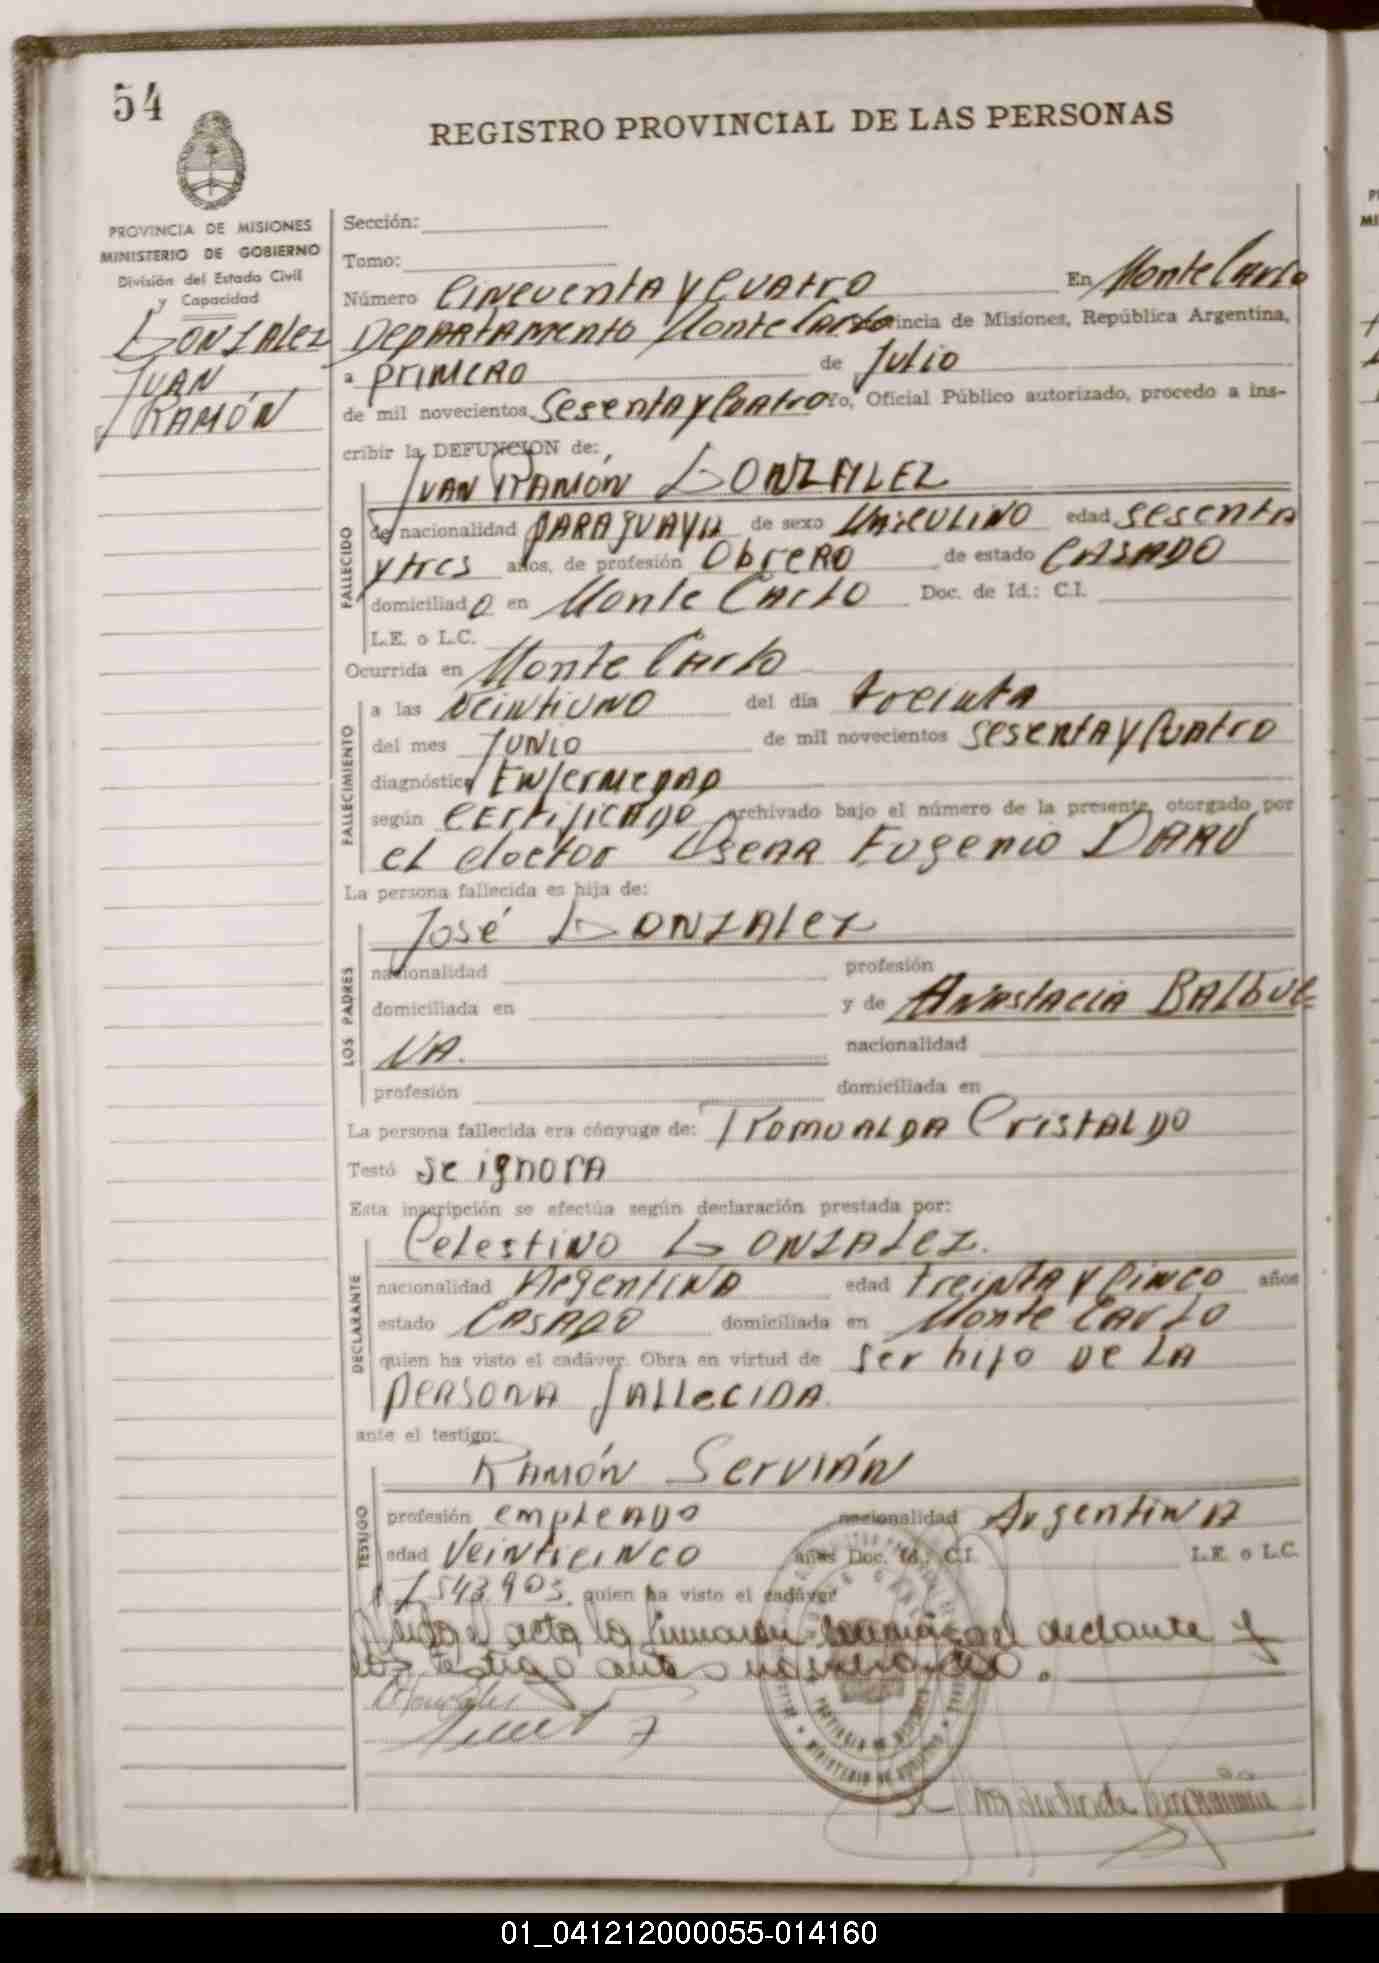 54
REGISTRO PROVINCIAL DE LAS PERSONAS
PROVINCIA DE MISIONES
MINISTERIO DE GOBIERNO
División del Estado Civil
y Capacidad
GONZALEZ
JUAN
RAMÓN
Sección:
Tomo:
Número CINCUENTA Y CUATRO En Monte Carlo
DEPARTAMENTO Monte Carlo Provincia de Misiones, República Argentina,
a PRIMERO de Julio
de mil novecientos Sesenta y Cuatro Yo, Oficial Público autorizado, procedo a ins-
cribir la DEFUNCION de:
JUAN RAMÓN GONZALEZ
FALLECIDO
de nacionalidad PARAGUAYA de sexo MASCULINO edad SESENTA
y tres años, de profesión ObrERO de estado CASADO
domiciliado en Monte Carlo Doc. de Id.: C.I.
L.E. o L.C.
Ocurrida en Monte Carlo
FALLECIMIENTO
a las VEINTIUNO del día treinta
del mes JUNIO de mil novecientos SESENTA y CUATRO
diagnóstico ENFERMEDAD
según CERTIFICADO archivado bajo el número de la presente, otorgado por
el doctor Eugenio DARU
La persona fallecida es hija de:
José GONZALEZ
LOS PADRES
nacionalidad profesión
domiciliada en y de ANASTACIA BALBUE-
NA. nacionalidad
profesión domiciliada en
La persona fallecida era cónyuge de: ROMUALDA CRISTALDO
Testó se ignora
Esta inscripción se efectúa según declaración prestada por:
Celestino GONZALEZ.
DECLARANTE
nacionalidad ARGENTINA edad TREINTA y CINCO años
estado CASADO domiciliada en Monte Carlo
quien ha visto el cadáver. Obra en virtud de ser hijo DE LA
PERSONA FALLECIDA.
ante el testigo:
RAMÓN SERVIÁN
TESTIGO
profesión empleado nacionalidad Argentina
edad VEINTICINCO años Doc. Id.: C.I. L.E. o L.C.
543.903 quien ha visto el cadáver
acta la declarante y
testigo ante
PROVINCIA DE MISIONES
MINISTERIO DE GOBIERNO
01_041212000055-014160